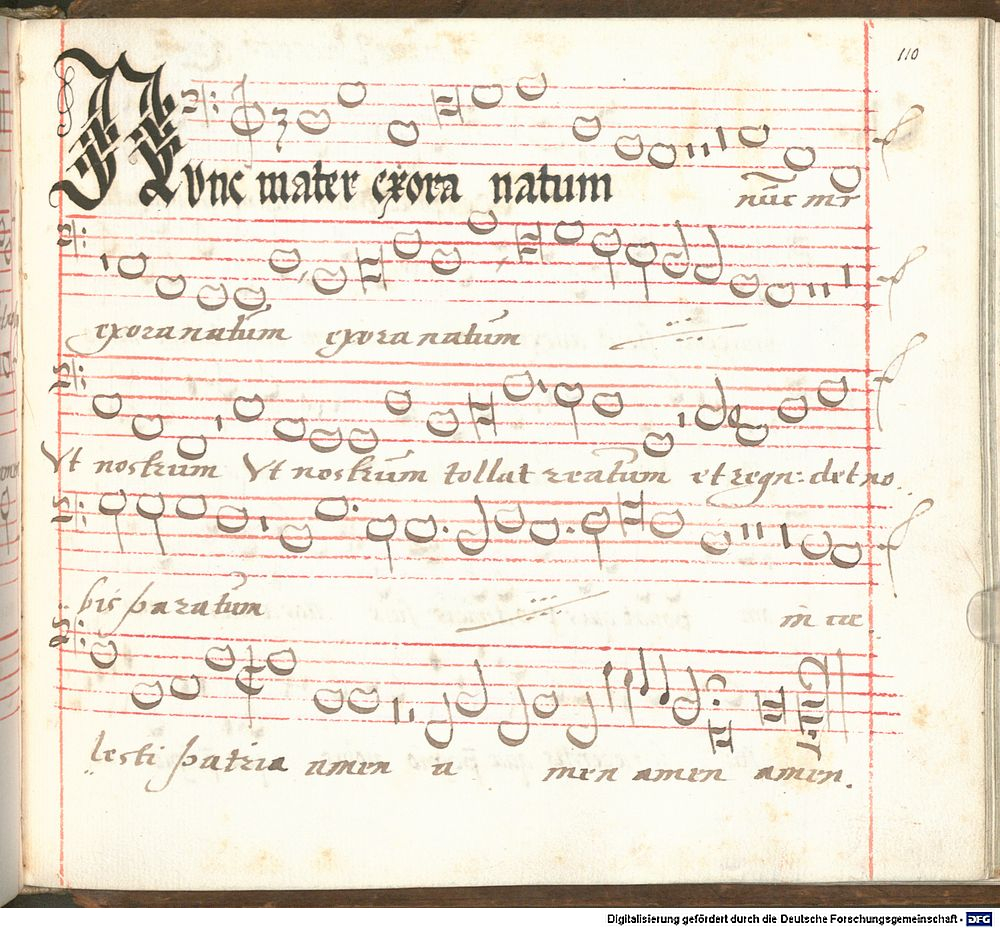 110
Nvnc mater exora natum nūc mr
exora natum exora natum
Vt nostrum Vt nostrum tollat reatum et regn: det no
bis paratum in ce
lesti patria amen a men amen amen.
Digitalisierung gefördert durch die Deutsche Forschungsgemeinschaft - DFG